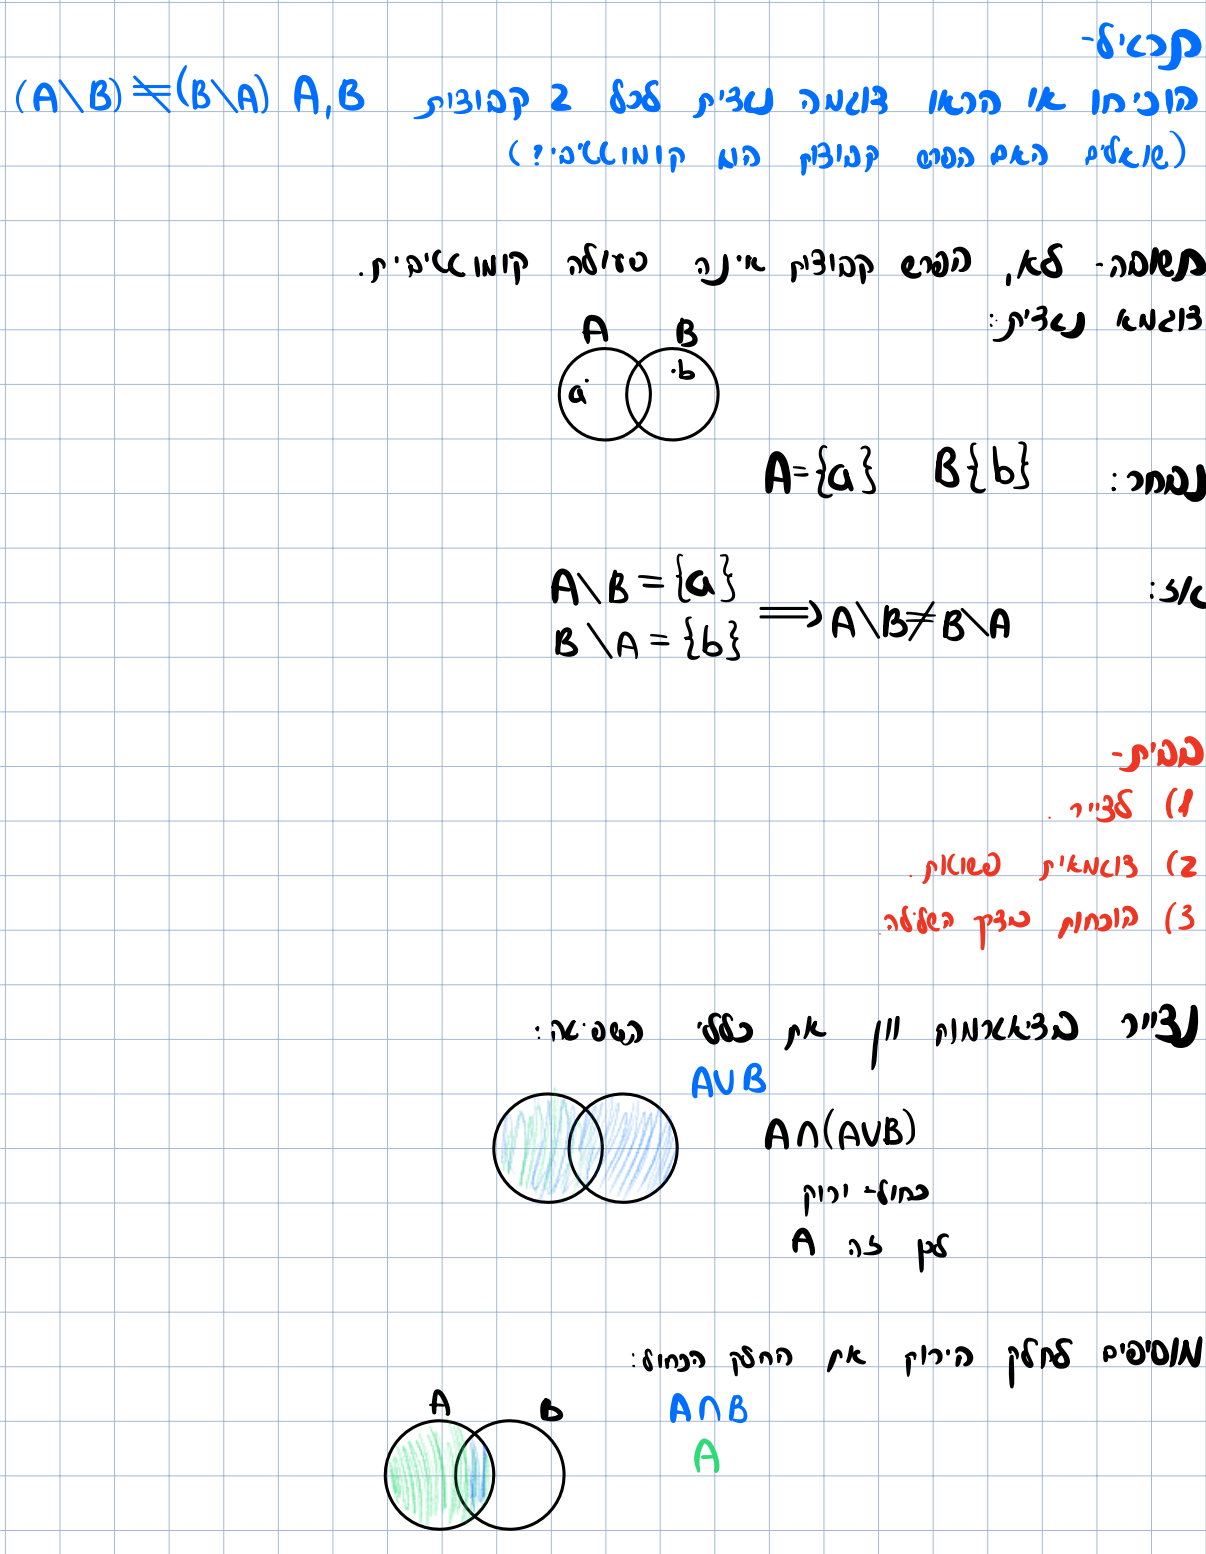 תרגיל-
הוכיחו או הראו דוגמה נגדית לכל 2 קבוצות A,B (A\B)≠(B\A)
(שואלים האם הפרש קבוצות הוא קומוטטיבי?)
תשובה- לא, הפרש קבוצות אינה פעולה קומוטטיבית.
דוגמא נגדית:
A B
a b
נבחר: A={a} B{b}
אז:
A\B={a}
B\A={b} ⟹ A\B≠B\A
בבית-
1) לצייר.
2) דוגמאות פשוטות.
3) הוכחות בדרך השלילה.
נצייר בדיאגרמות וון את כללי הספיגה:
A∪B
A∩(A∪B)
כחול-ירוק
לכן זה A
מוסיפים לחלק הירוק את החלק הכחול:
A B A∩B
A